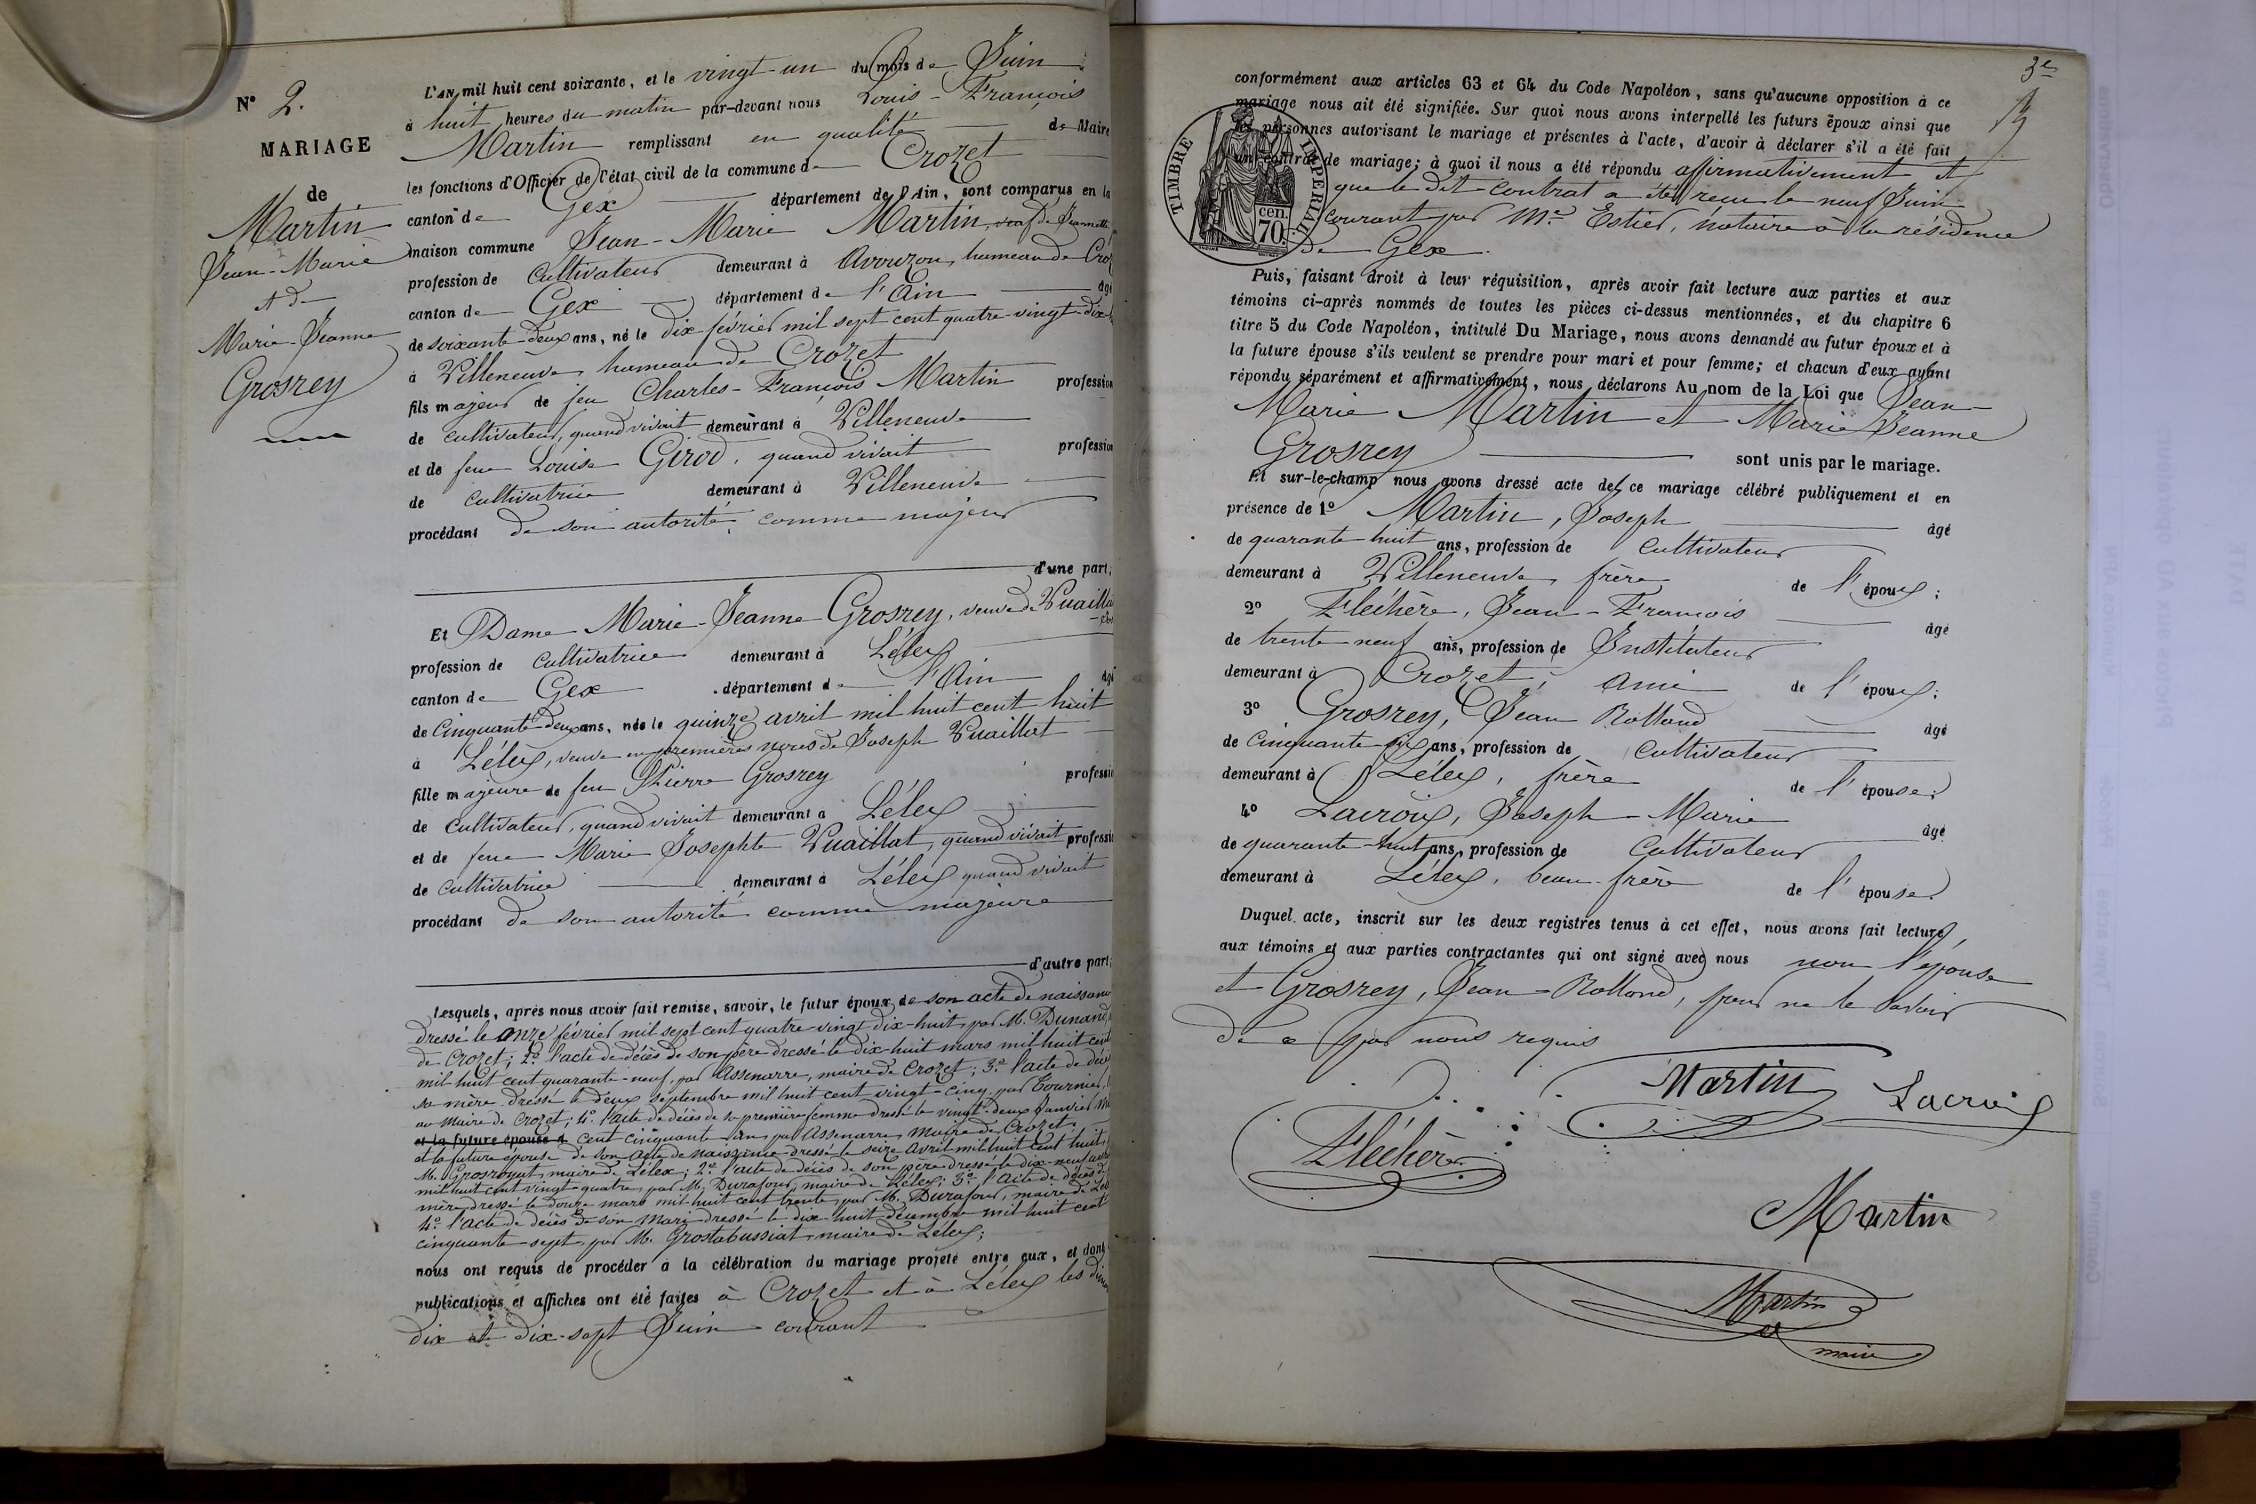 N° 2.
MARIAGE
de
Martin
Jean-Marie
et de
Marie-Jeanne
Grosrey
L'AN mil huit cent soixante, et le vingt-un du mois de Juin
à huit heures du matin par-devant nous Louis-François
Martin remplissant en qualité de Maire
les fonctions d'Officier de l'état civil de la commune de Crozet
canton de Gex département de l'Ain, sont comparus en la
maison commune Jean-Marie Martin, veuf de Jeannette
profession de Cultivateur demeurant à Avouzon, hameau de Croz
canton de Gex département de l'Ain âgé
de soixante-deux ans, né le dix février mil sept cent quatre-vingt-dix-
à Villeneuve, hameau de Crozet
fils majeur de feu Charles-François Martin profession
de cultivateur, quand vivait demeurant à Villeneuve
et de feue Louise Girod, quand vivait profession
de cultivatrice demeurant à Villeneuve
procédant de son autorité comme majeur
d'une part;
Et Dame Marie-Jeanne Grosrey, veuve de Vuailla
profession de Cultivatrice demeurant à Lélex
canton de Gex département de l'Ain âgé
de Cinquante-deux ans, née le quinze avril mil huit cent huit
à Lélex, veuve en premières noces de Joseph Vuaillat
fille majeure de feu Pierre Grosrey professio
de cultivateur, quand vivait demeurant à Lélex
et de feue Marie Josephte Vuaillat, quand vivait professio
de cultivatrice demeurant à Lélex quand vivait
procédant de son autorité comme majeure
d'autre part;
Lesquels, après nous avoir fait remise, savoir, le futur époux de son acte de naissance
dressé le onze février mil sept cent quatre-vingt dix-huit, par M. Dunand,
de Crozet; 2° l'acte de décès de son père dressé le dix-huit mars mil huit cent
mil huit cent quarante-neuf, par Assenarre, maire de Crozet; 3° l'acte de décè
sa mère dressé le deux septembre mil huit cent vingt-cinq, par Tournier,
au Maire de Crozet; 4° l'acte de décès de sa première femme dressé le vingt-deux Janvier
et la future épouse d cent cinquante-un par Assenarre, Maire de Crozet.
et la future épouse de son acte de naissance dressé le seize Avril mil huit cent huit,
M. Grosroyat, maire de Lélex; 2° l'acte de décès de son père dressé le dix-neuf
mil huit cent vingt-quatre, par M. Durafour, maire de Lélex; 3° l'acte de décès de
mère dressé le douze mars mil huit cent trente, par M. Durafour, maire de Lél
4° l'acte de décès de son mari dressé le dix-huit décembre mil huit cent
cinquante-sept, par M. Grostabussiat, maire de Lélex;
nous ont requis de procéder à la célébration du mariage projeté entre eux, et dont
publications et affiches ont été faites à Crozet et à Lélex les dim
dix et dix-sept Juin courant
3e
TIMBRE IMPERIAL
70 cen.
conformément aux articles 63 et 64 du Code Napoléon, sans qu'aucune opposition à ce
mariage nous ait été signifiée. Sur quoi nous avons interpellé les futurs époux ainsi que
les personnes autorisant le mariage et présentes à l'acte, d'avoir à déclarer s'il a été fait
un contrat de mariage; à quoi il nous a été répondu affirmativement et
que le dit contrat a été reçu le neuf Juin
courant par Me Estier, notaire à la résidence
de Gex.
Puis, faisant droit à leur réquisition, après avoir fait lecture aux parties et aux
témoins ci-après nommés de toutes les pièces ci-dessus mentionnées, et du chapitre 6
titre 5 du Code Napoléon, intitulé Du Mariage, nous avons demandé au futur époux et à
la future épouse s'ils veulent se prendre pour mari et pour femme; et chacun d'eux ayant
répondu séparément et affirmativement, nous déclarons Au nom de la Loi que Jean-
Marie Martin et Marie Jeanne
Grosrey sont unis par le mariage.
Et sur-le-champ nous avons dressé acte de ce mariage célébré publiquement et en
présence de 1° Martin, Joseph âgé
de quarante-huit ans, profession de Cultivateur
demeurant à Villeneuve, frère de l'époux;
2° Fléchère, Jean-François âgé
de trente-neuf ans, profession de Instituteur
demeurant à Crozet, ami de l'époux;
3° Grosrey, Jean Rolland âgé
de Cinquante-six ans, profession de Cultivateur
demeurant à Lélex, frère de l'épouse;
4° Lacroix, Joseph-Marie âgé
de quarante-huit ans, profession de Cultivateur
demeurant à Lélex, beau-frère de l'épouse.
Duquel acte, inscrit sur les deux registres tenus à cet effet, nous avons fait lecture
aux témoins et aux parties contractantes qui ont signé avec nous non l'épouse
et Grosrey, Jean-Rolland, pour ne le savoir
de ce par nous requis
Martin Lacroix
Fléchère
Martin
Martin
maire